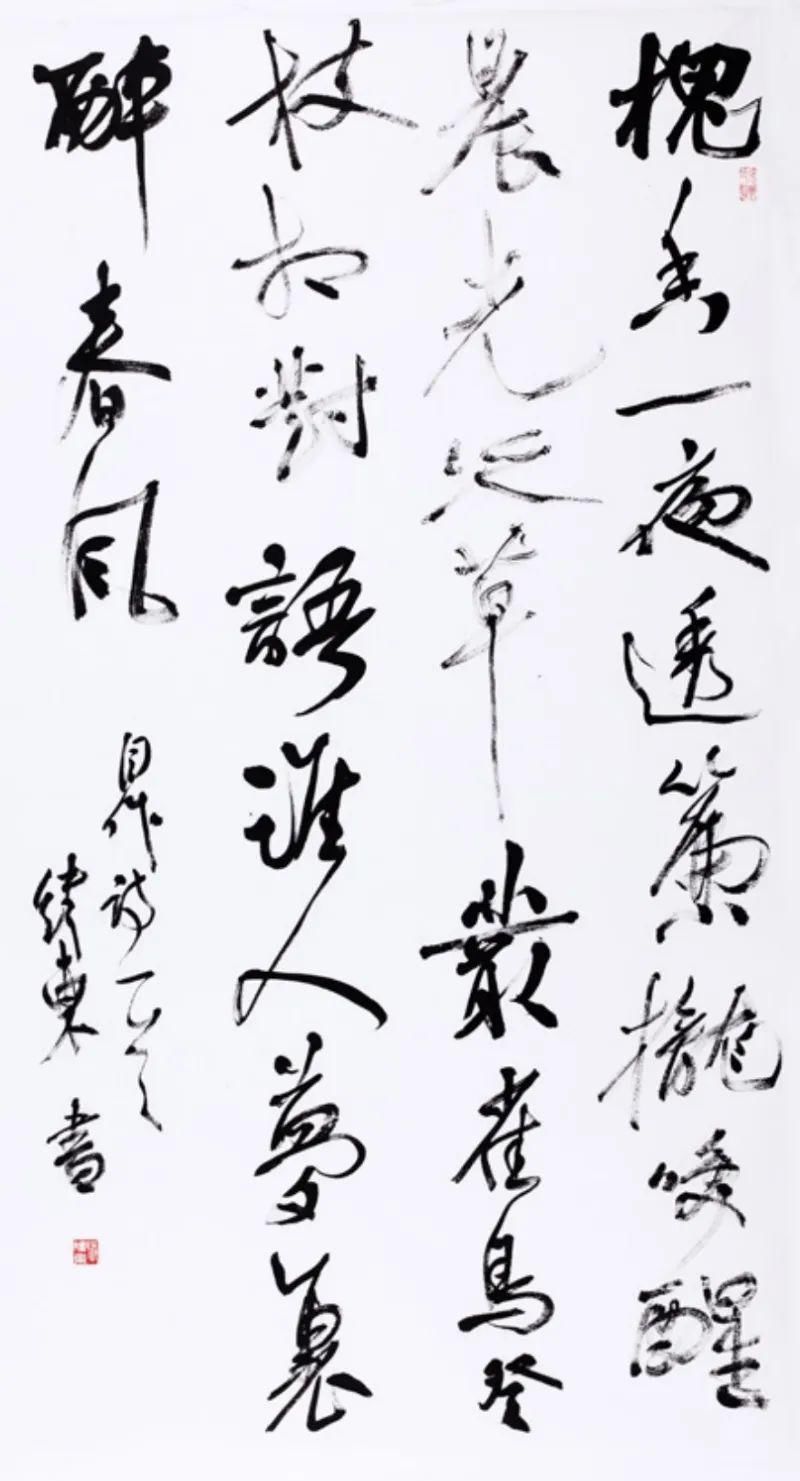 槐香一夜透簾攏唤醒
晨光從草叢雀鳥登
枝相對語誰人夢裏
醉春風
自作詩一首
東書